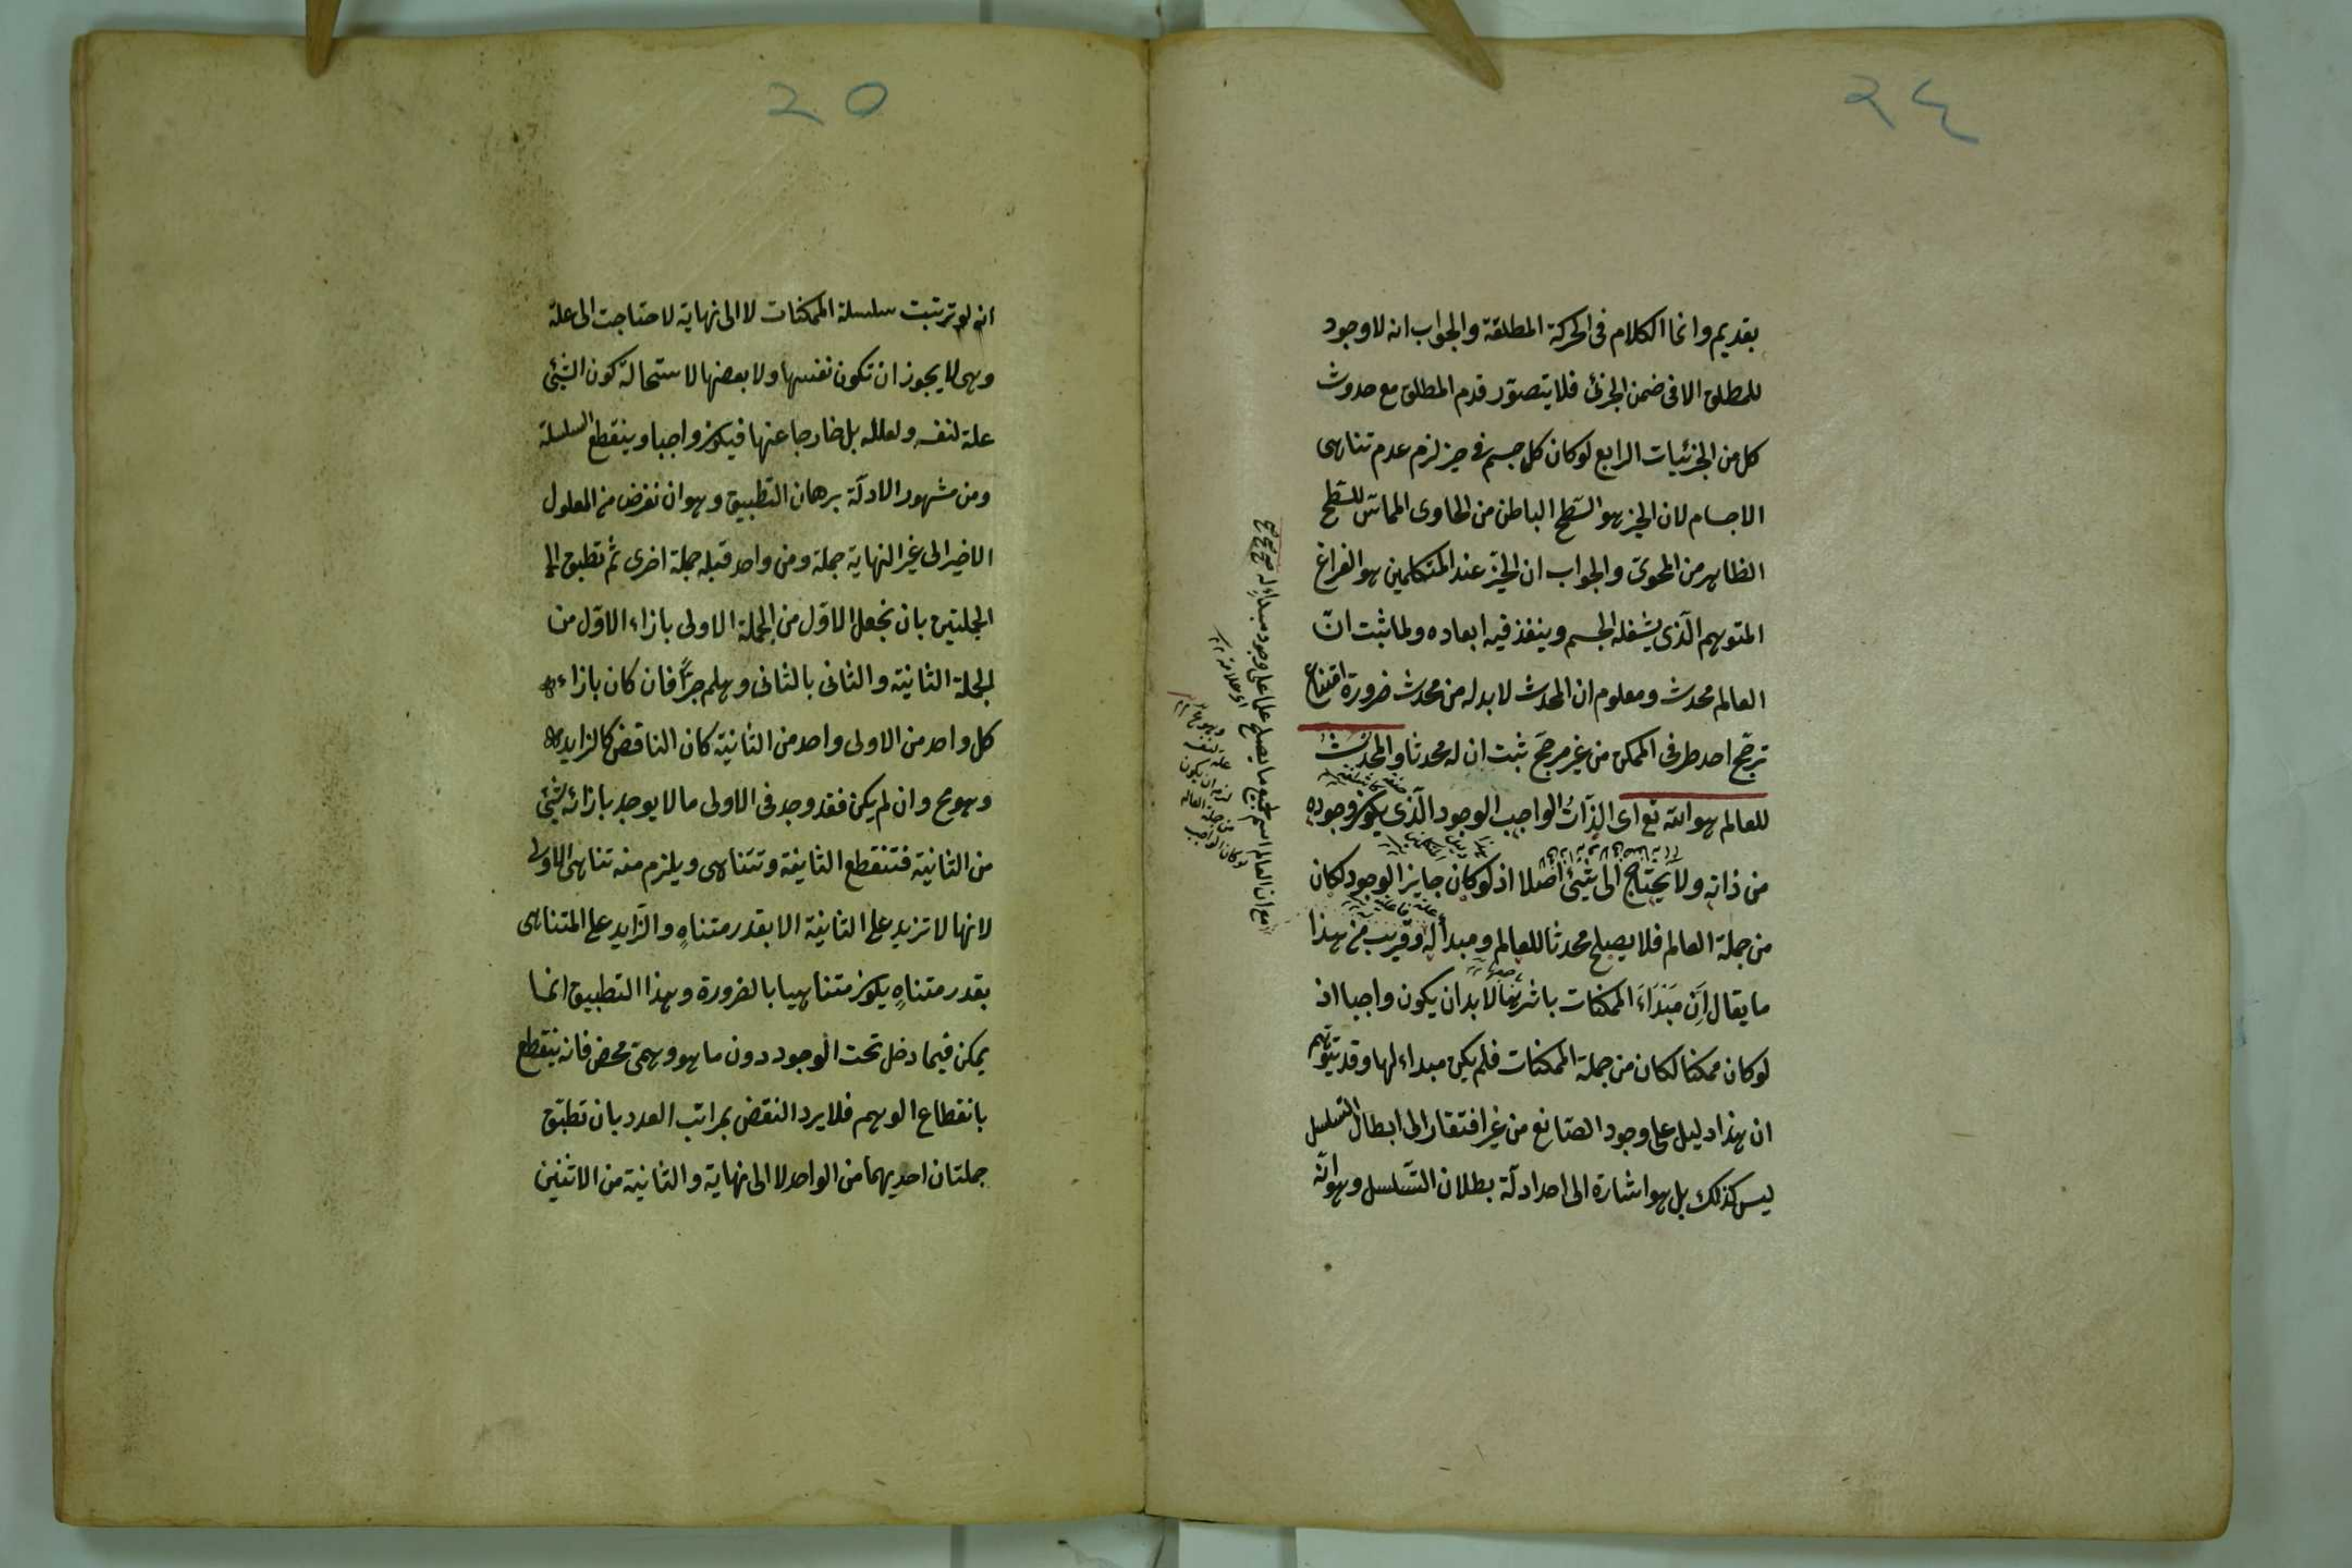 ٢٤
بقديم وانما الكلام فى الحركة المطلقة والجواب انه لا وجود
للمطلق الا فى ضمن الجزئى فلا يتصوّر قدم المطلق مع حدوث
كل من الجزئيات الرابع لو كان كل جسم فى حيز لزم عدم تناهى
الاجسام لان الحيز هو السّطح الباطن من الحاوى المماسّ للسّطح
الظاهر من المحوىّ والجواب ان الحيّز عند المتكلمين هو الفراغ
المتوهم الّذى يشغله الجسم وينفذ فيه ابعاده ولما ثبت انّ
العالم محدث ومعلوم ان المحدث لا بد له من محدث ضرورة امتناع
ترجّح احد طرفى الممكن من غير مرجّح ثبت ان له محدثا والمحدث
للعالم هو الله تع اى الذّات الواجب الوجود الّذى يكون وجوده
من ذاته ولا يحتاج الى شئ اصلا اذ لو كان جايز الوجود لكان
من جملة العالم فلا يصلح محدثا للعالم ومبدأ له وقريب من هذا
ما يقال ان مبداء الممكنات باسرها لا بد ان يكون واجبا اذ
لو كان ممكنا لكان من جملة الممكنات فلم يكن مبداء لها وقد يتوهم
ان هذا دليل على وجود الصّانع من غير افتقار الى ابطال التسلسل
ليس كذلك بل هو اشارة الى احد ادلّة بطلان التّسلسل وهو انّه
مع ان العالم اسم لجميع ما يصلح علما على وجود مبداء له
اى علامة
لو كان الواجب
من جملة العالم
لزم ان يكون
علة لنفسه
وهو مح
٢٥
انه لو ترتبت سلسلة الممكنات لا الى نهاية لاحتاجت الى علة
وهى لا يجوز ان تكون نفسها ولا بعضها لاستحالة كون الشئ
علة لنفسه ولعلله بل خارجا عنها فيكون واجبا وينقطع السلسلة
ومن مشهور الادلّة برهان التطبيق وهو ان نفرض من المعلول
الاخير الى غير النهاية جملة ومن واحد قبله جملة اخرى ثم تطبق
الجملتين بان نجعل الاوّل من الجملة الاولى بازاء الاوّل من
الجملة الثانية والثانى بالثانى وهلم جرًّا فان كان بازاء
كل واحد من الاولى واحد من الثانية كان الناقص كالزايد
وهو مح وان لم يكن فقد وجد فى الاولى ما لا يوجد بازائه شئ
من الثانية فتنقطع الثانية وتتناهى ويلزم منه تناهى الاولى
لانها لا تزيد على الثانية الا بقدر متناهٍ والزّايد على المتناهى
بقدر متناهٍ يكون متناهيا بالضرورة وهذا التطبيق انما
يمكن فيما دخل تحت الوجود دون ما هو وهمىّ محض فانه ينقطع
بانقطاع الوهم فلا يرد النقض بمراتب العدد بان تطبّق
جملتان احديهما من الواحد لا الى نهاية والثانية من الاثنين